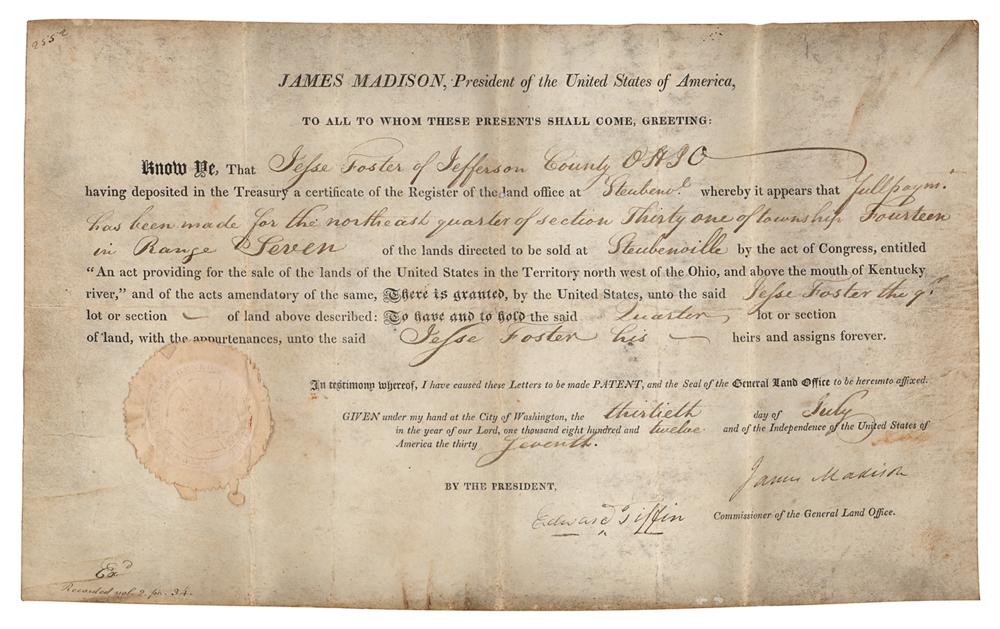 2552
JAMES MADISON, President of the United States of America,
TO ALL TO WHOM THESE PRESENTS SHALL COME, GREETING:
Know Ye, That Jesse Foster of Jefferson County OHIO
having deposited in the Treasury a certificate of the Register of the land office at Steubenve. whereby it appears that full paymt.
has been made for the northeast quarter of section Thirty one of township Fourteen
in Range Seven of the lands directed to be sold at Steubenville by the act of Congress, entitled
“An act providing for the sale of the lands of the United States in the Territory north west of the Ohio, and above the mouth of Kentucky
river,” and of the acts amendatory of the same, There is granted, by the United States, unto the said Jesse Foster the qr.
lot or section of land above described: To have and to hold the said Quarter lot or section
of land, with the appurtenances, unto the said Jesse Foster his heirs and assigns forever.
In testimony whereof, I have caused these Letters to be made PATENT, and the Seal of the General Land Office to be hereunto affixed.
GIVEN under my hand at the City of Washington, the thirtieth day of July
in the year of our Lord, one thousand eight hundred and twelve and of the Independence of the United States of
America the thirty seventh.
James Madison
BY THE PRESIDENT,
Edward Tiffin Commissioner of the General Land Office.
Exd
Recorded vol. 2. pa. 34.